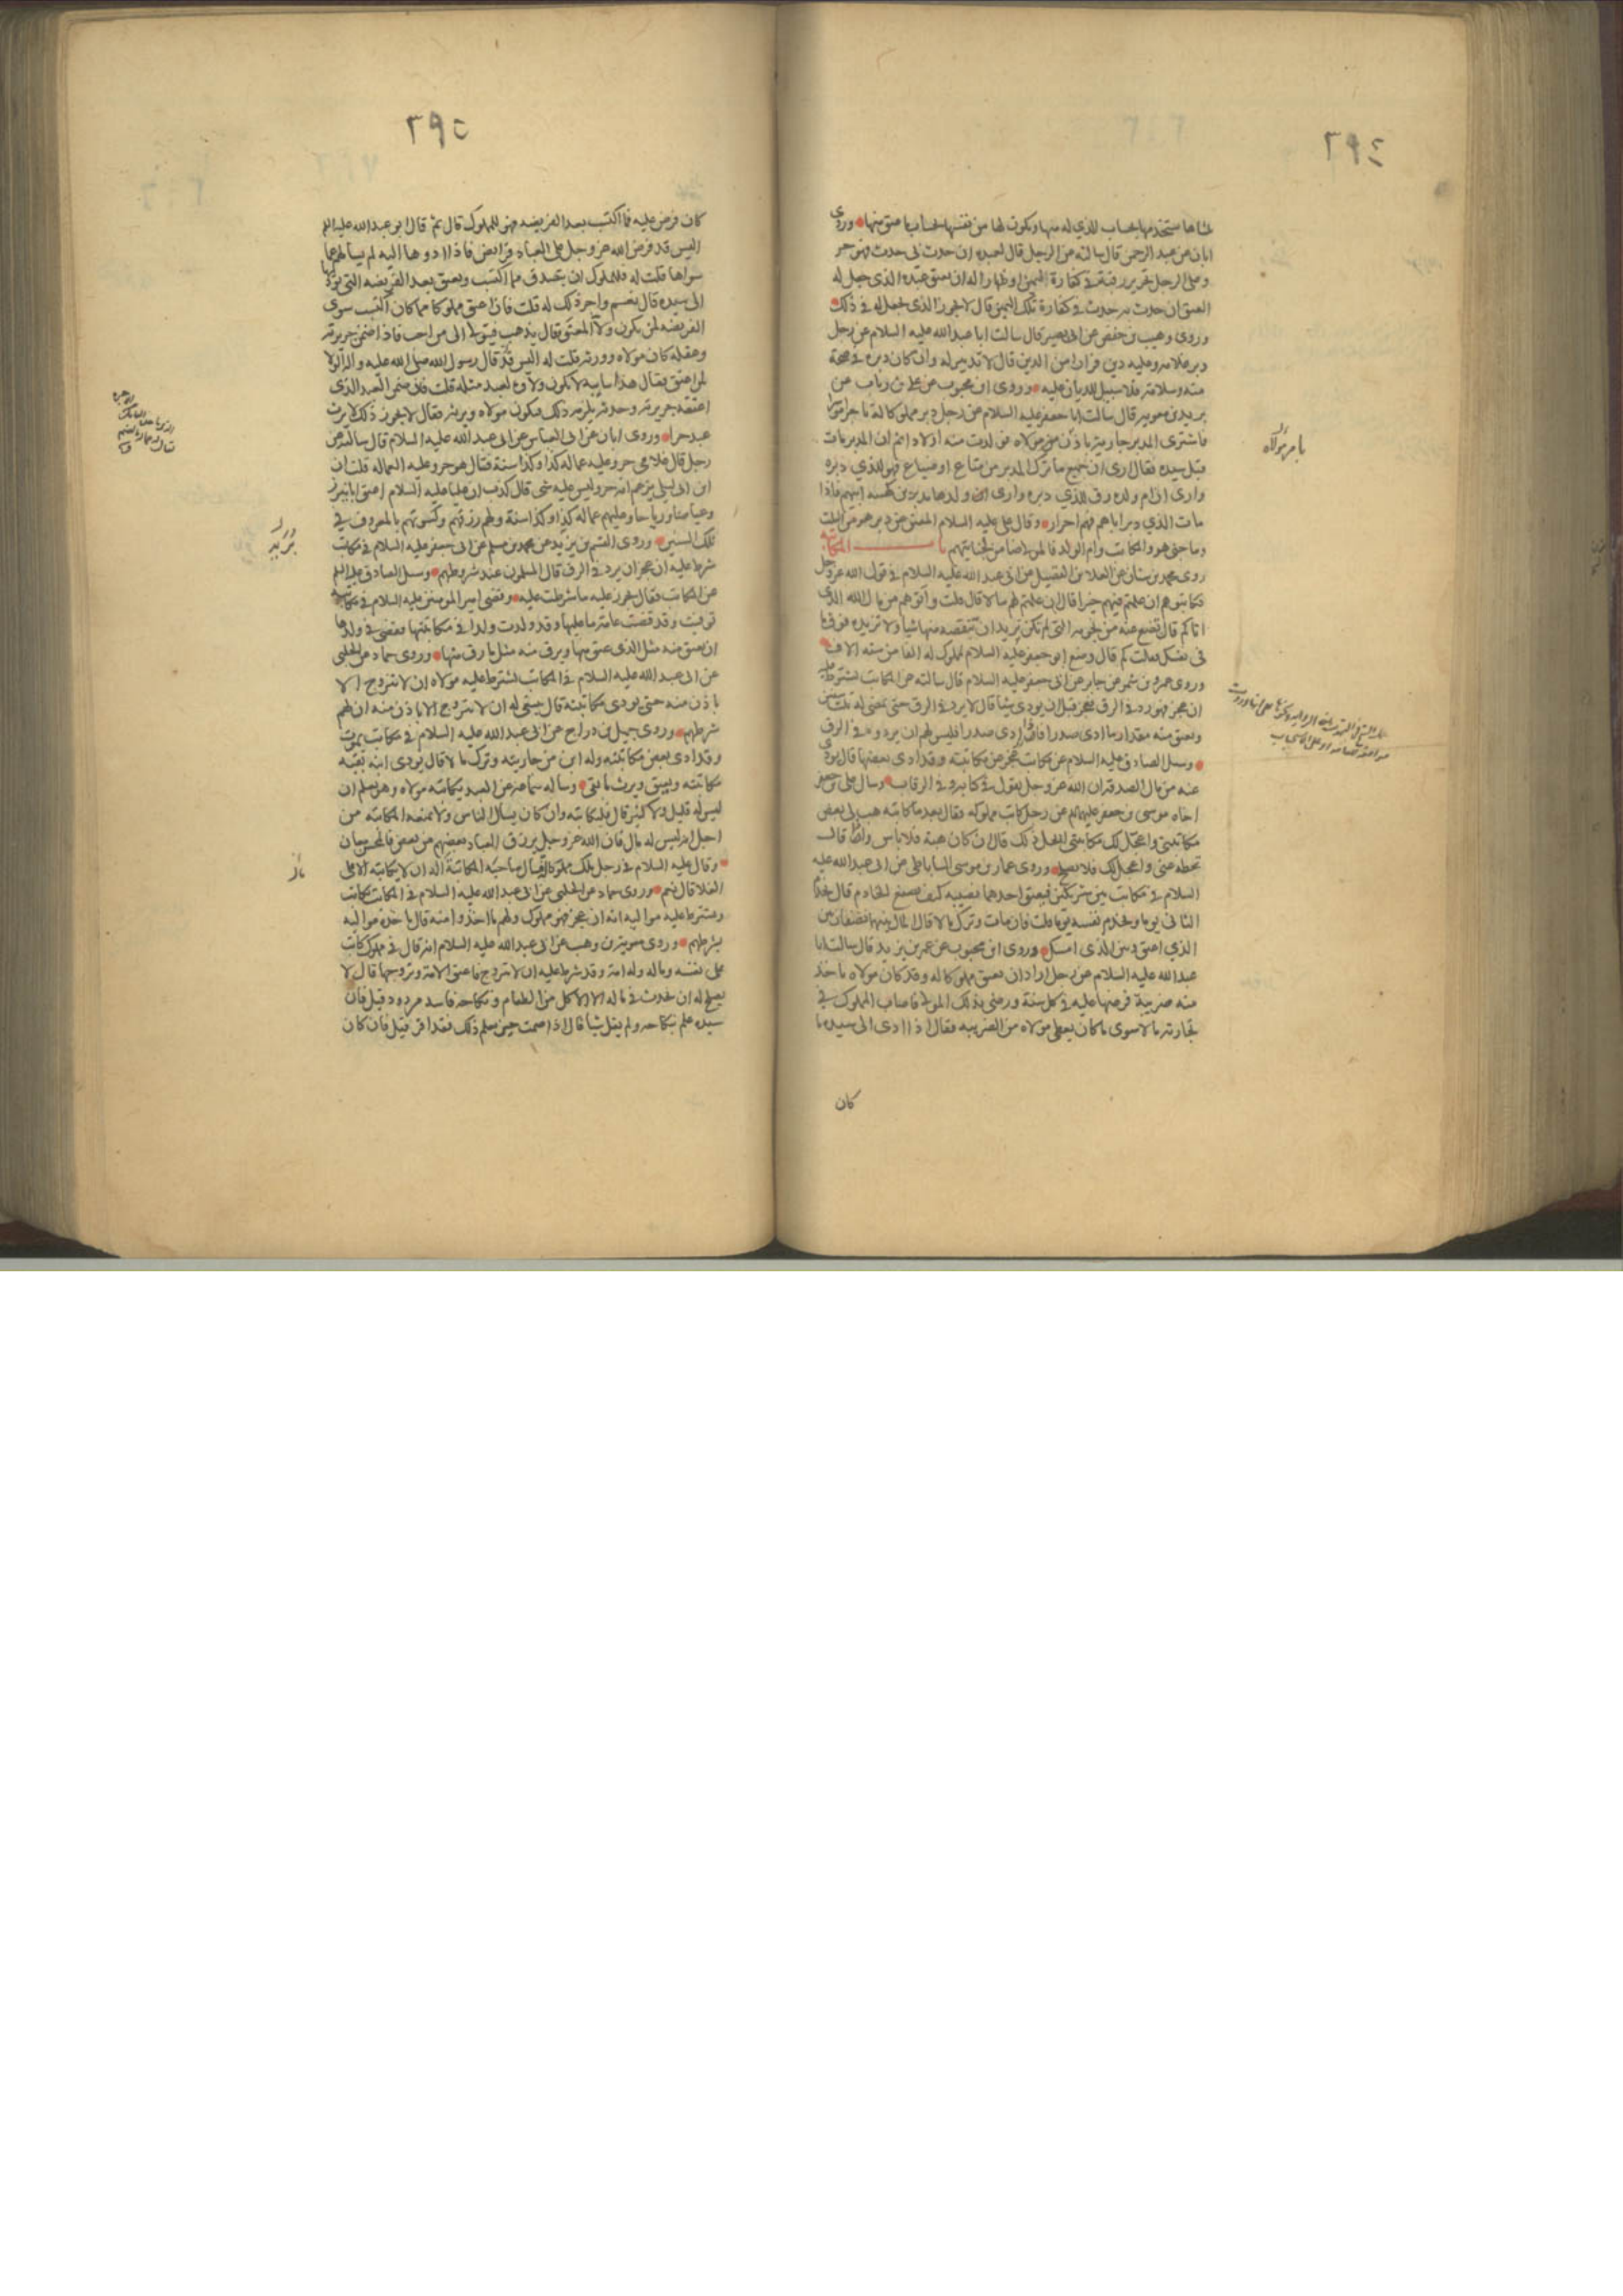 ٢٩٤
ثلثاها ستخدمها بحساب الذي له منها ويكون لها من نفسها بحساب ما عتق منها وروى
ابان عن عبد الرحمن قال سالته عن الرجل قال لعبده ان حدث بي حدث فهو حر
وعلى الرجل تحرير رقبة في كفارة اليمين او ظهار اله ان يعتق عبده الذي جعل له
العتق ان حدث به حدث في كفارة تلك اليمين قال لا يجوز الذي جعل له في ذلك
وروى وهيب بن حفص عن ابي بصير قال سالت ابا عبد الله عليه السلام عن رجل
دبر غلامه وعليه دين فرارا من الدين قال لا تدبير له وان كان دبره في صحة
منه وسلامة فلا سبيل للديان عليه وروى ابن محبوب عن علي بن رياب عن
بريد بن معوية قال سالت ابا جعفر عليه السلام عن رجل دبر مملوكا له تاجرا موسرا
فاشترى المدبر جارية باذن مولاه فولدت منه اولادا ثم ان المدبر مات
قبل سيده فقال ارى ان جميع ما ترك المدبر من متاع او ضياع فهو للذي دبره
وارى ان ام ولده رق للذي دبره وارى ان ولدها مدبرين كهيئة ابيهم فاذا
مات الذي دبر اباهم فهم احرار وقال علي عليه السلام المعتق عن دبر هو من الثلث
وما جنى هو والمكاتب وام الولد فالمولى ضامن لجنايتهم باب المكاتبة
روى محمد بن سنان عن العلا بن الفضيل عن ابي عبد الله عليه السلام في قول الله عز وجل
فكاتبوهم ان علمتم فيهم خيرا قال ان علمتم لهم مالا قال قلت واتوهم من مال الله الذي
اتاكم قال تضع عنه من نجومه التي لم تكن تريد ان تنقصه منها شيا ولا تزيده فوق ما
في نفسك فقلت كم قال وضع ابو جعفر عليه السلام لمملوك له الفا من ستة الاف
وروى عمرو بن شمر عن جابر عن ابي جعفر عليه السلام قال سالته عن المكاتب يشترط عليه
ان عجز فهو رد في الرق فعجز قبل ان يودي شيا قال لا يرد في الرق حتى يمضي له ثلث سنين
ويعتق منه مقدار ما ادى صدرا فاذا ادى صدرا فليس لهم ان يردوه في الرق
وسئل الصادق عليه السلام عن مكاتب عجز عن مكاتبته وقد ادى بعضها قال يودى
عنه من مال الصدقة ان الله عز وجل يقول في كتابه وفي الرقاب وسال علي بن جعفر
اخاه موسى بن جعفر عليهم السلام عن رجل كاتب مملوكه وقال بعد ما كاتبه هب لي بعض
مكاتبتي واعجل لك مكاتبتي ايحل ذلك قال ان كان هبة فلا باس وان قال
تحط عني واعجل لك فلا يصلح وروى عمار بن موسى الساباطي عن ابي عبد الله عليه
السلام في مكاتب بين شريكين فيعتق احدهما نصيبه كيف يصنع الخادم قال يخدم
الثاني يوما ويخدم نفسه يوما قلت فان مات وترك مالا قال المال بينهما نصفان بين
الذي اعتق وبين الذي امسك وروى ابن محبوب عن عمر بن يزيد قال سالت ابا
عبد الله عليه السلام عن رجل اراد ان يعتق مملوكا له وقد كان مولاه ياخذ
منه ضريبة فرضها عليه في كل سنة ورضي بذلك المولى فاصاب المملوك في
تجارته مالا سوى ما كان يعطي مولاه من الضريبة فقال اذا ادى الى سيده ما
كان
بامر مولاه
٢٩٥
كان فرض عليه فما اكتسب بعد الفريضه فهو للمملوك قال ثم قال ابو عبد الله عليه السلم
اليس قد فرض الله عز وجل على العباد فرايض فاذا ادوها اليه لم يسألهم عما
سواها قلت له فللمملوك ان يتصدق مما اكتسب ويعتق بعد الفريضه التي يوديها
الى سيده قال نعم واجر ذلك له قلت فاذا اعتق مملوكا مما كان اكتسب سوى
الفريضه لمن يكون ولآ المعتق قال يذهب فيتولى الى من احب فاذا ضمن جريرته
وعقله كان مولاه وورثه قلت له اليس قد قال رسول الله صلى الله عليه واله الولا
لمن اعتق فقال هذا سايبه لا يكون ولاؤه لعبد مثله قلت فان ضمن العبد الذي
اعتقه جريرته وحدثه يلزمه ذلك ويكون مولاه ويرثه فقال لا يجوز ذلك لا يرث
عبد حرا وروى ابان عن ابي العباس عن ابي عبد الله عليه السلام قال سالته عن
رجل قال غلامي حر وعليه عمالة كذا وكذا سنة فقال هو حر وعليه العماله قلت ان
ابن ابي ليلى يزعم انه حر وليس عليه شي قال كذب ان عليا عليه السلام اعتق ابا نيزر
وعياضا ورياحا وعليهم عمالة كذا وكذا سنة ولهم رزقهم وكسوتهم بالمعروف في
تلك السنين وروى القسم بن بريد عن محمد بن مسلم عن ابي جعفر عليه السلام في مكاتب
شرط عليه ان عجز ان يرد في الرق قال المسلمون عند شروطهم وسئل الصادق عليه السلم
عن المكاتب فقال يجوز عليه ما شرطت عليه وقضى امير المومنين عليه السلام في مكاتبة
توفيت وقد قضت عامة ما عليها وقد ولدت ولدا في مكاتبتها فقضى في ولدها
ان يعتق منه مثل الذي عتق منها ويرق منه مثل ما رق منها وروى حماد عن الحلبي
عن ابي عبد الله عليه السلام في المكاتب يشترط عليه مولاه ان لا يتزوج الا
باذن منه حتى يودي مكاتبته قال ينبغي له ان لا يتزوج الا باذن منه ان لهم
شرطهم وروى جميل بن دراج عن ابي عبد الله عليه السلام في مكاتب يموت
وقد ادى بعض مكاتبته وله ابن من جاريته وترك مالا قال يودي ابنه بقية
مكاتبته ويعتق ويرث ما بقي وساله سماعة عن العبد يكاتبه مولاه وهو يعلم ان
ليس له قليل ولا كثير قال فليكاتبه وان كان يسال الناس ولا يمنعه المكاتبه من
اجل انه ليس له مال فان الله عز وجل يرزق العباد بعضهم من بعض فالمحسن معان
وقال عليه السلام في رجل ملك مملوكا فسال صاحبه المكاتبة اله ان لا يكاتبه الا على
الغلا قال نعم وروى حماد عن الحلبي عن ابي عبد الله عليه السلام في المكاتب يكاتب
ويشترط عليه مواليه انه ان عجز فهو مملوك ولهم ما اخذوا منه قال ياخذه مواليه
بشرطهم وروى معوية بن وهب عن ابي عبد الله عليه السلام انه قال في مملوك كاتب
على نفسه وماله وله امة وقد شرط عليه ان لا يتزوج فاعتق الامة وتزوجها قال لا
يصلح له ان يحدث في ماله الا الاكل من الطعام ونكاحه فاسد مردود قيل فان
سيده علم بنكاحه ولم يقل شيا قال اذا صمت حين يعلم ذلك فقد اقر قيل فان كان
بريد